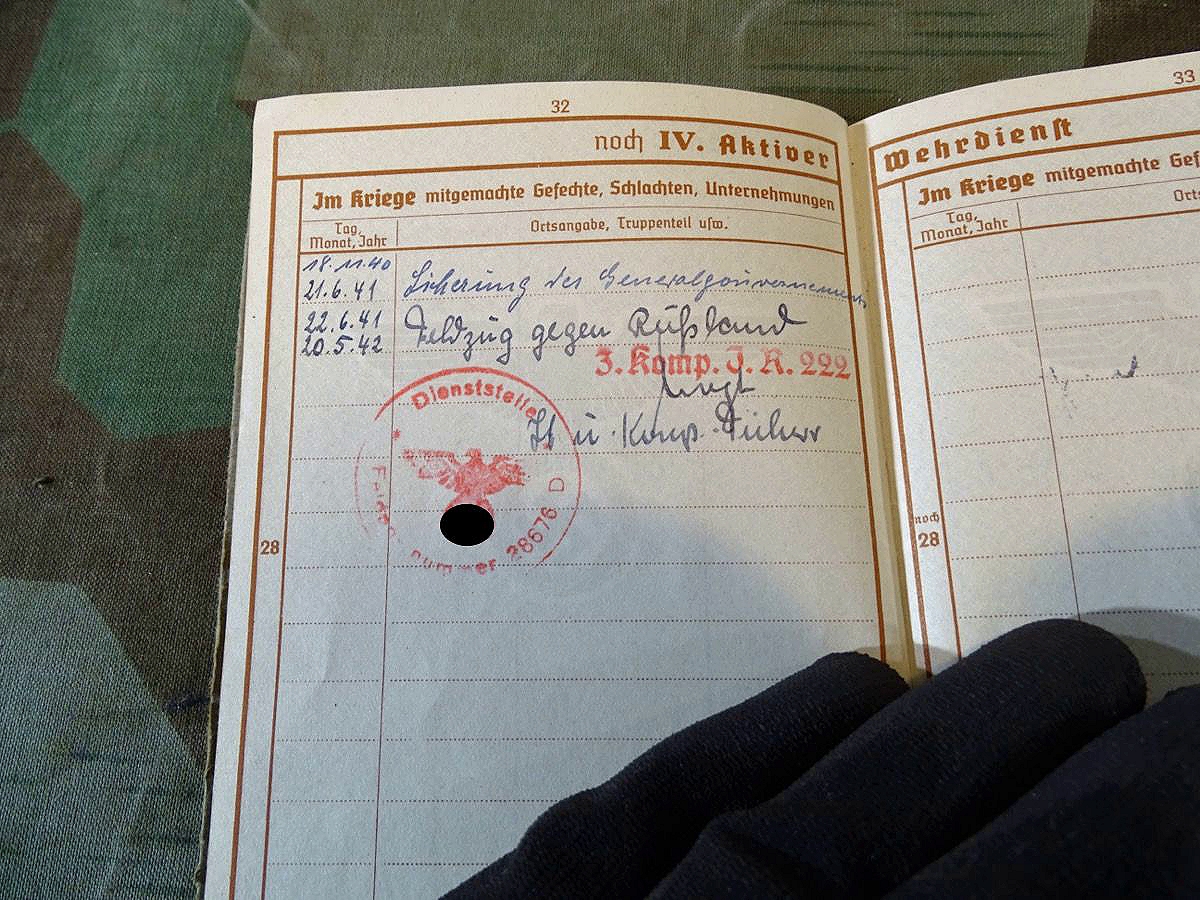 32
noch IV. Aktiver
Im Kriege mitgemachte Gefechte, Schlachten, Unternehmungen
Tag, Monat, Jahr
Ortsangabe, Truppenteil usw.
18.11.40
21.6.41 Sicherung des Generalgouvernements
22.6.41
20.5.42 Feldzug gegen Rußland
3. Komp. J. R. 222
u. Komp. Führer
Dienststelle
nummer 28676 D
28
33
Wehrdienst
Im Kriege mitgemachte Gef
Tag, Monat, Jahr
Orts
noch
28